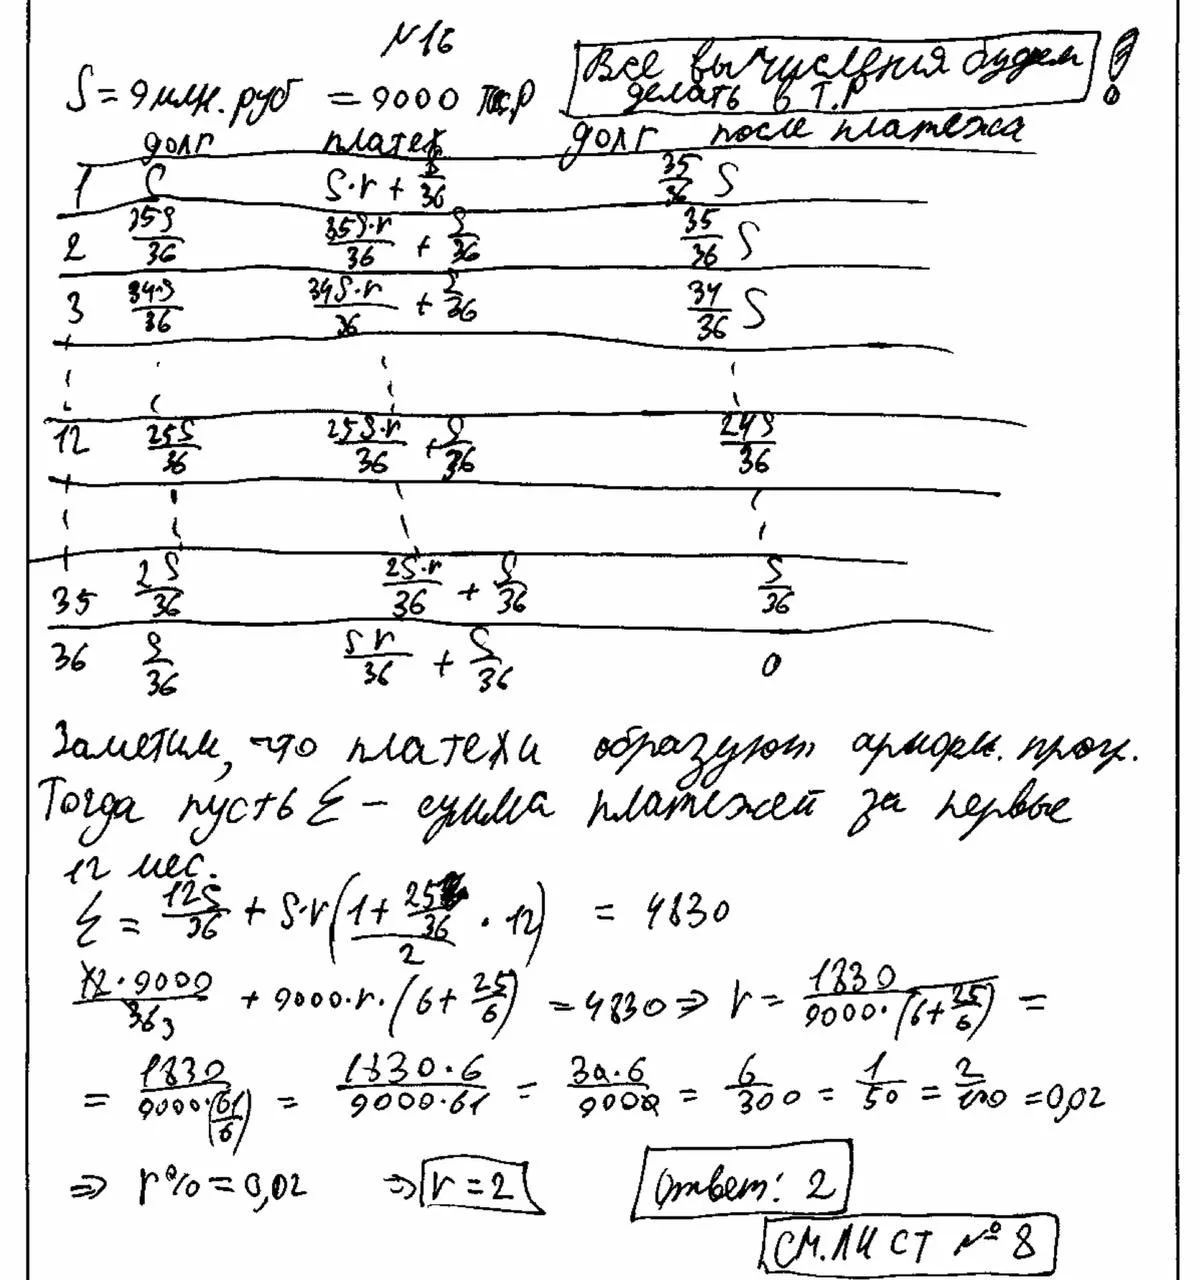 №16
Все вычисления будем
делать в Т.Р !
S = 9 млн. руб = 9000 тыс.р
долг платеж долг после платежа
1 S S·r + S/36 35/36 S
2 35S/36 35S·r/36 + S/36 35/36 S
3 34S/36 34S·r/36 + S/36 34/36 S
12 25S/36 25S·r/36 + S/36 24S/36
35 2S/36 2S·r/36 + S/36 S/36
36 S/36 Sr/36 + S/36 0
Заметим, что платежи образуют арифм. прогр.
Тогда пусть Σ – сумма платежей за первые
12 мес.
Σ = 12S/36 + S·r((1 + 25/36)/2 · 12) = 4830
12·9000/36 3 + 9000·r·(6 + 25/6) = 4830 ⇒ r = 1830/(9000·(6 + 25/6)) =
= 1830/(9000·(61/6)) = 1830·6/(9000·61) = 30·6/9000 = 6/300 = 1/50 = 2/100 = 0,02
⇒ r% = 0,02 ⇒ r = 2 Ответ: 2
СМ. ЛИСТ № 8